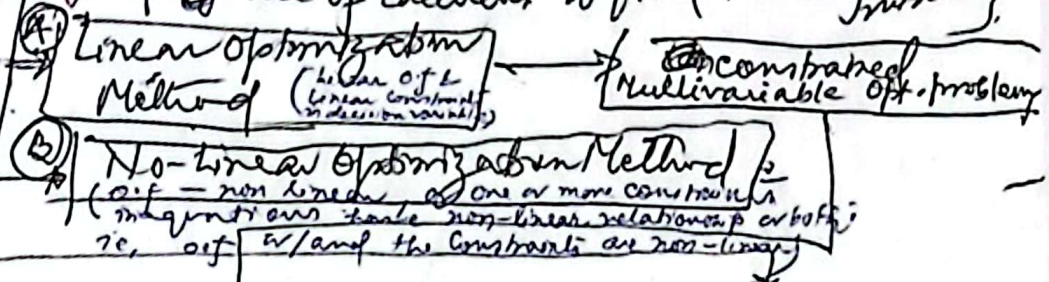 (A) Linear Optimization
Method (Linear O.f &
Linear constraints
in decision variables)
Unconstrained
Multivariable Opt. problem
(B) No-Linear Optimization Method :
(o.f - non linear, or one or more constraints
inequations have non-linear relationship or both;
ie, o.f or/and the Constraints are non-linear)